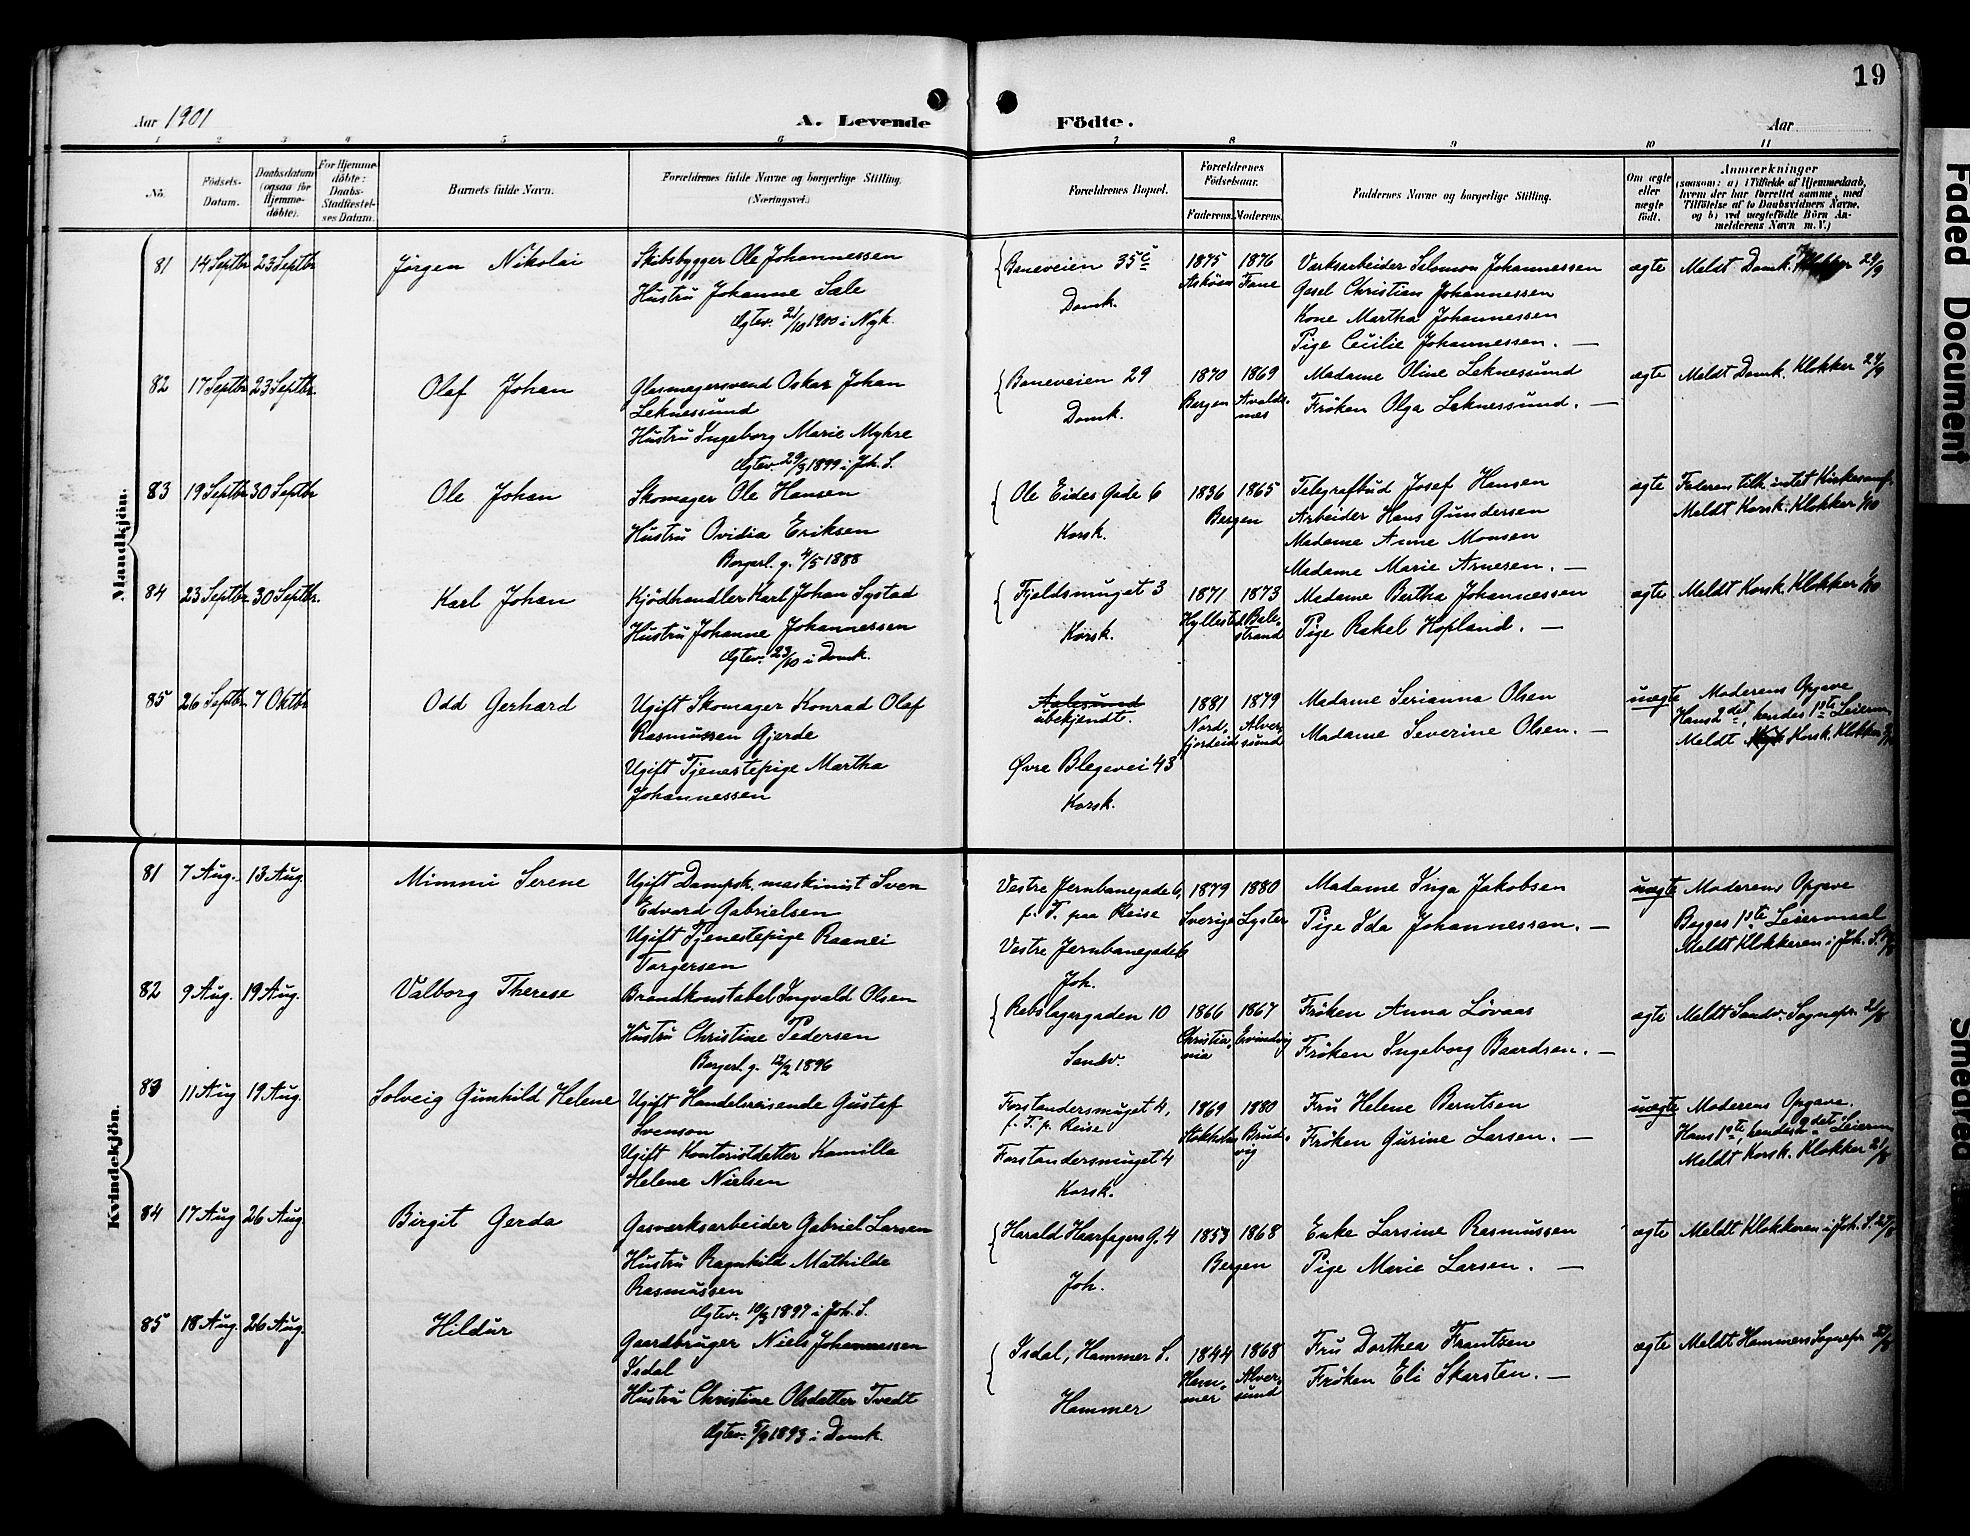 19
Aar 1901
A. Levende
Födte.
Aar
1 2 3 4 5 6 7 8 9 10 11
No.
Födsels-Datum.
Daabsdatum (ogsaa for Hjemme-döbte).
For Hjemme-döbte: Daabs-Stadfæstel-ses Datum.
Barnets fulde Navn.
Forældrenes fulde Navne og borgerlige Stilling.
(Næringsvei.)
Forældrenes Bopæl.
Forældrenes Födselsaar.
Faderens. Moderens.
Faddernes Navne og borgerlige Stilling.
Om ægte eller uægte födt.
Anmærkninger
(saasom: a) i Tilfælde af Hjemmedaab,
hvem der har forrettet samme, med
Tilföielse af to Daabsvidners Navne,
og b) ved uægtefödte Börn An-
melderens Navn m. V.)
Mandkjön.
81 14 Septbr 23 Septbr Jørgen Nikolai Skibsbygger Ole Johannessen Baneveien 35c 1875 1876 Værksarbeider Salomon Johannessen ægte Meldt Domk. 24/9
Hustru Johanne Sæle Domk. Askøen Fane Gesel Christian Johannessen
Ægtev. 21/10 1900 i Nyk. Kone Martha Johannessen
Pige Cecilie Johannessen. —
82 17 Septbr 23 Septbr. Olaf Johan Glasmagersvend Oskar Johan Baneveien 29 1870 1869 Madame Oline Leknessund ægte Meldt Domk. Klokker 24/9
Leknessund Domk. Bergen Avalds-nes Frøken Olga Leknessund. —
Hustru Ingeborg Marie Myhre
Ægtev. 29/3 1899 i Joh. S.
83 19 Septbr. 30 Septbr Ole Johan Skomager Ole Hansen Ole Eides Gade 6 1836 1865 Telegrafbud Josef Hansen ægte Faderen tilh. intet Kirkesamf.
Hustru Ovidia Eriksen Korsk. Bergen Arbeider Hans Gundersen Meldt Korsk. Klokker 1/10
Borgerl. g. 4/5 1888 Madame Anne Monsen
Madame Marie Arnesen. —
84 23 Septbr. 30 Septbr. Karl Johan Kjödhandler Karl Johan Systad Fjeldsmuget 3 1871 1873 Madame Bertha Johannessen ægte Meldt Korsk. Klokker 1/10
Hustru Johanne Johannessen Korsk. Hyllestad Bale-strand Pige Rakel Hopland. —
Ægtev. 23/10 i Domk.
85 26 Septbr 7 Oktbr Odd Gerhard Ugift Skomager Konrad Olaf Aalesund 1881 1879 Madame Serianna Olsen uægte Moderens Opgave
Rasmussen Gjerde ubekjendt. Nord-fjordeid Alver-sund Madame Severine Olsen. — Hans 2det, hendes 1ste Leierm
Ugift Tjenestepige Martha Øvre Blegevei 43 Meldt Korsk. Klokker
Johannessen Korsk.
Kvindekjön.
81 7 Aug. 13 Aug. Mimmi Serene Ugift Dampsk. maskinist Sven Vestre Jernbanegade 6, 1879 1880 Madame Inga Jakobsen uægte Moderens Opgave
Edvard Gabrielsen f. T. paa Reise Sverige Lyster Pige Ida Johannessen. — Begges 1ste Leiermaal
Ugift Tjenestepige Raanei Vestre Jernbanegade 6 Meldt Klokkeren i Joh. S.
Torgersen Joh.
82 9 Aug. 19 Aug. Valborg Therese Brandkonstabel Ingvald Olsen Rebslagergaden 10 1866 1867 Frøken Anna Løvaas ægte Meldt Sandv. Sognepr. 21/8
Hustru Christine Pedersen Sandv. Christia-nia Evindvig Frøken Ingeborg Baardsen. —
Borgerl. g. 12/2 1896
83 11 Aug 19 Aug. Solveig Gunhild Helene Ugift Handelsreisende Gustaf Forstandersmuget 4, 1869 1880 Fru Helene Berntsen uægte Moderens Opgave.
Svenson f. T. p. Reise Stokholm Brud-vig Frøken Gurine Larsen. — Hans 1ste, hendes 2det Leierm
Ugift Kontoristdatter Kamilla Forstandersmuget 4 Meldt Korsk. Klokker 21/8
Helene Nielsen Korsk.
84 17 Aug 26 Aug. Birgit Gerda Gasværksarbeider Gabriel Larsen Harald Haarfagers G. 4 1853 1868 Enke Larsine Rasmussen ægte Meldt Klokkeren i Joh. S. 27/8
Hustru Ragnhild Mathilde Joh. Bergen Pige Marie Larsen. —
Rasmussen
Ægtev. 10/3 1897 i Joh. S.
85 18 Aug. 26 Aug. Hildur Gaardbruger Niels Johannessen Isdal, Hammer S. 1844 1868 Fru Dorthea Frantzen ægte Meldt Hammers Sognepr. 27/8
Isdal Hammer Ham-mer Alver-sund Frøken Eli Skarsten. —
Hustru Christine Olsdatter Tvedt
Ægtev. 5/9 1893 i Domk.
Faded Document
Smeared